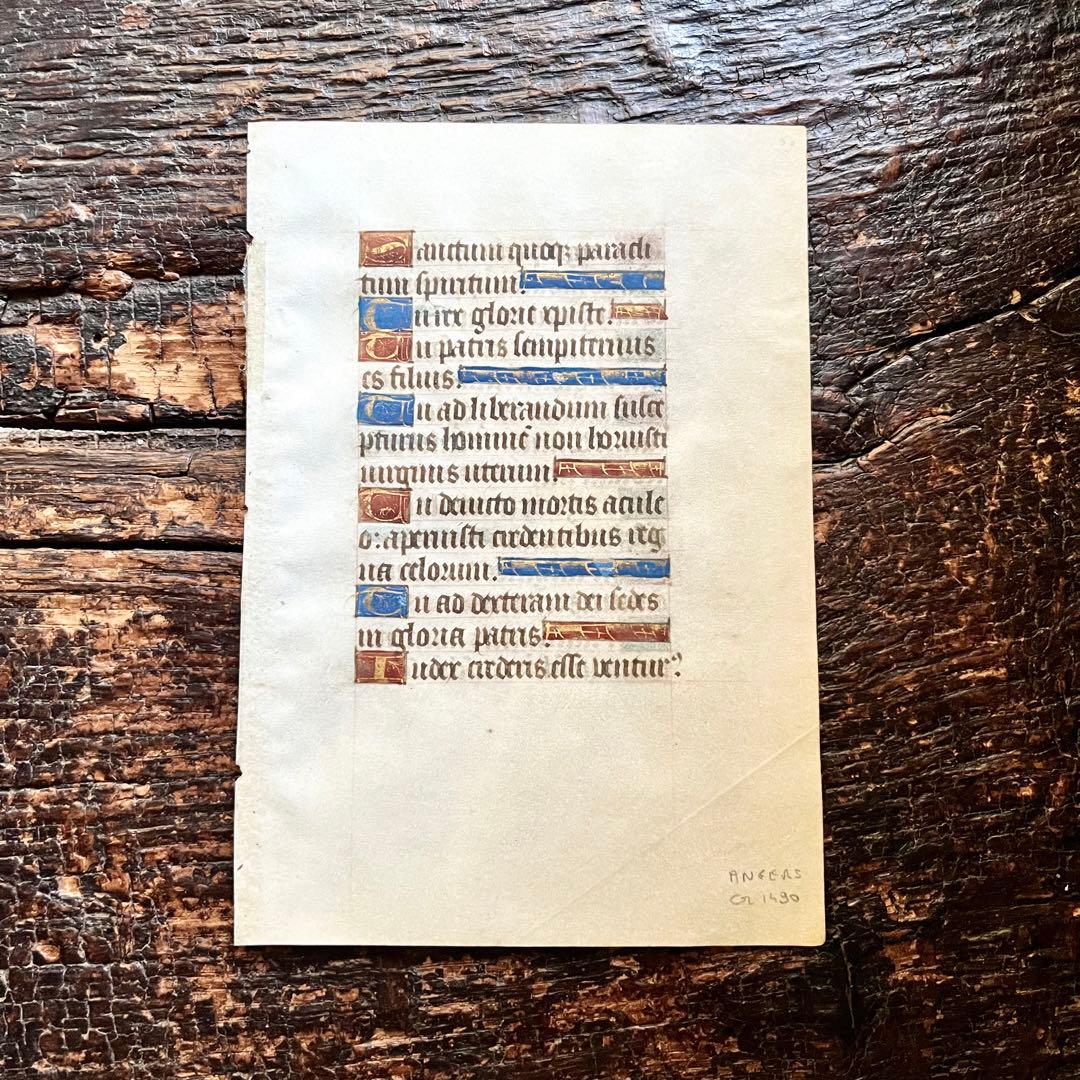 Sanctum quoq; paracli
tum spiritum.
Tu rex glorie xpiste.
Tu patris sempiternus
es filius.
Tu ad liberandum susce
pturus hominē non horuisti
uirginis uterum.
Tu deuicto mortis acule
o: aperuisti credentibus reg
na celorum.
Tu ad dexteram dei sedes
in gloria patris.
Iudex crederis esse ventur⁹
ANGERS
Ca 1490